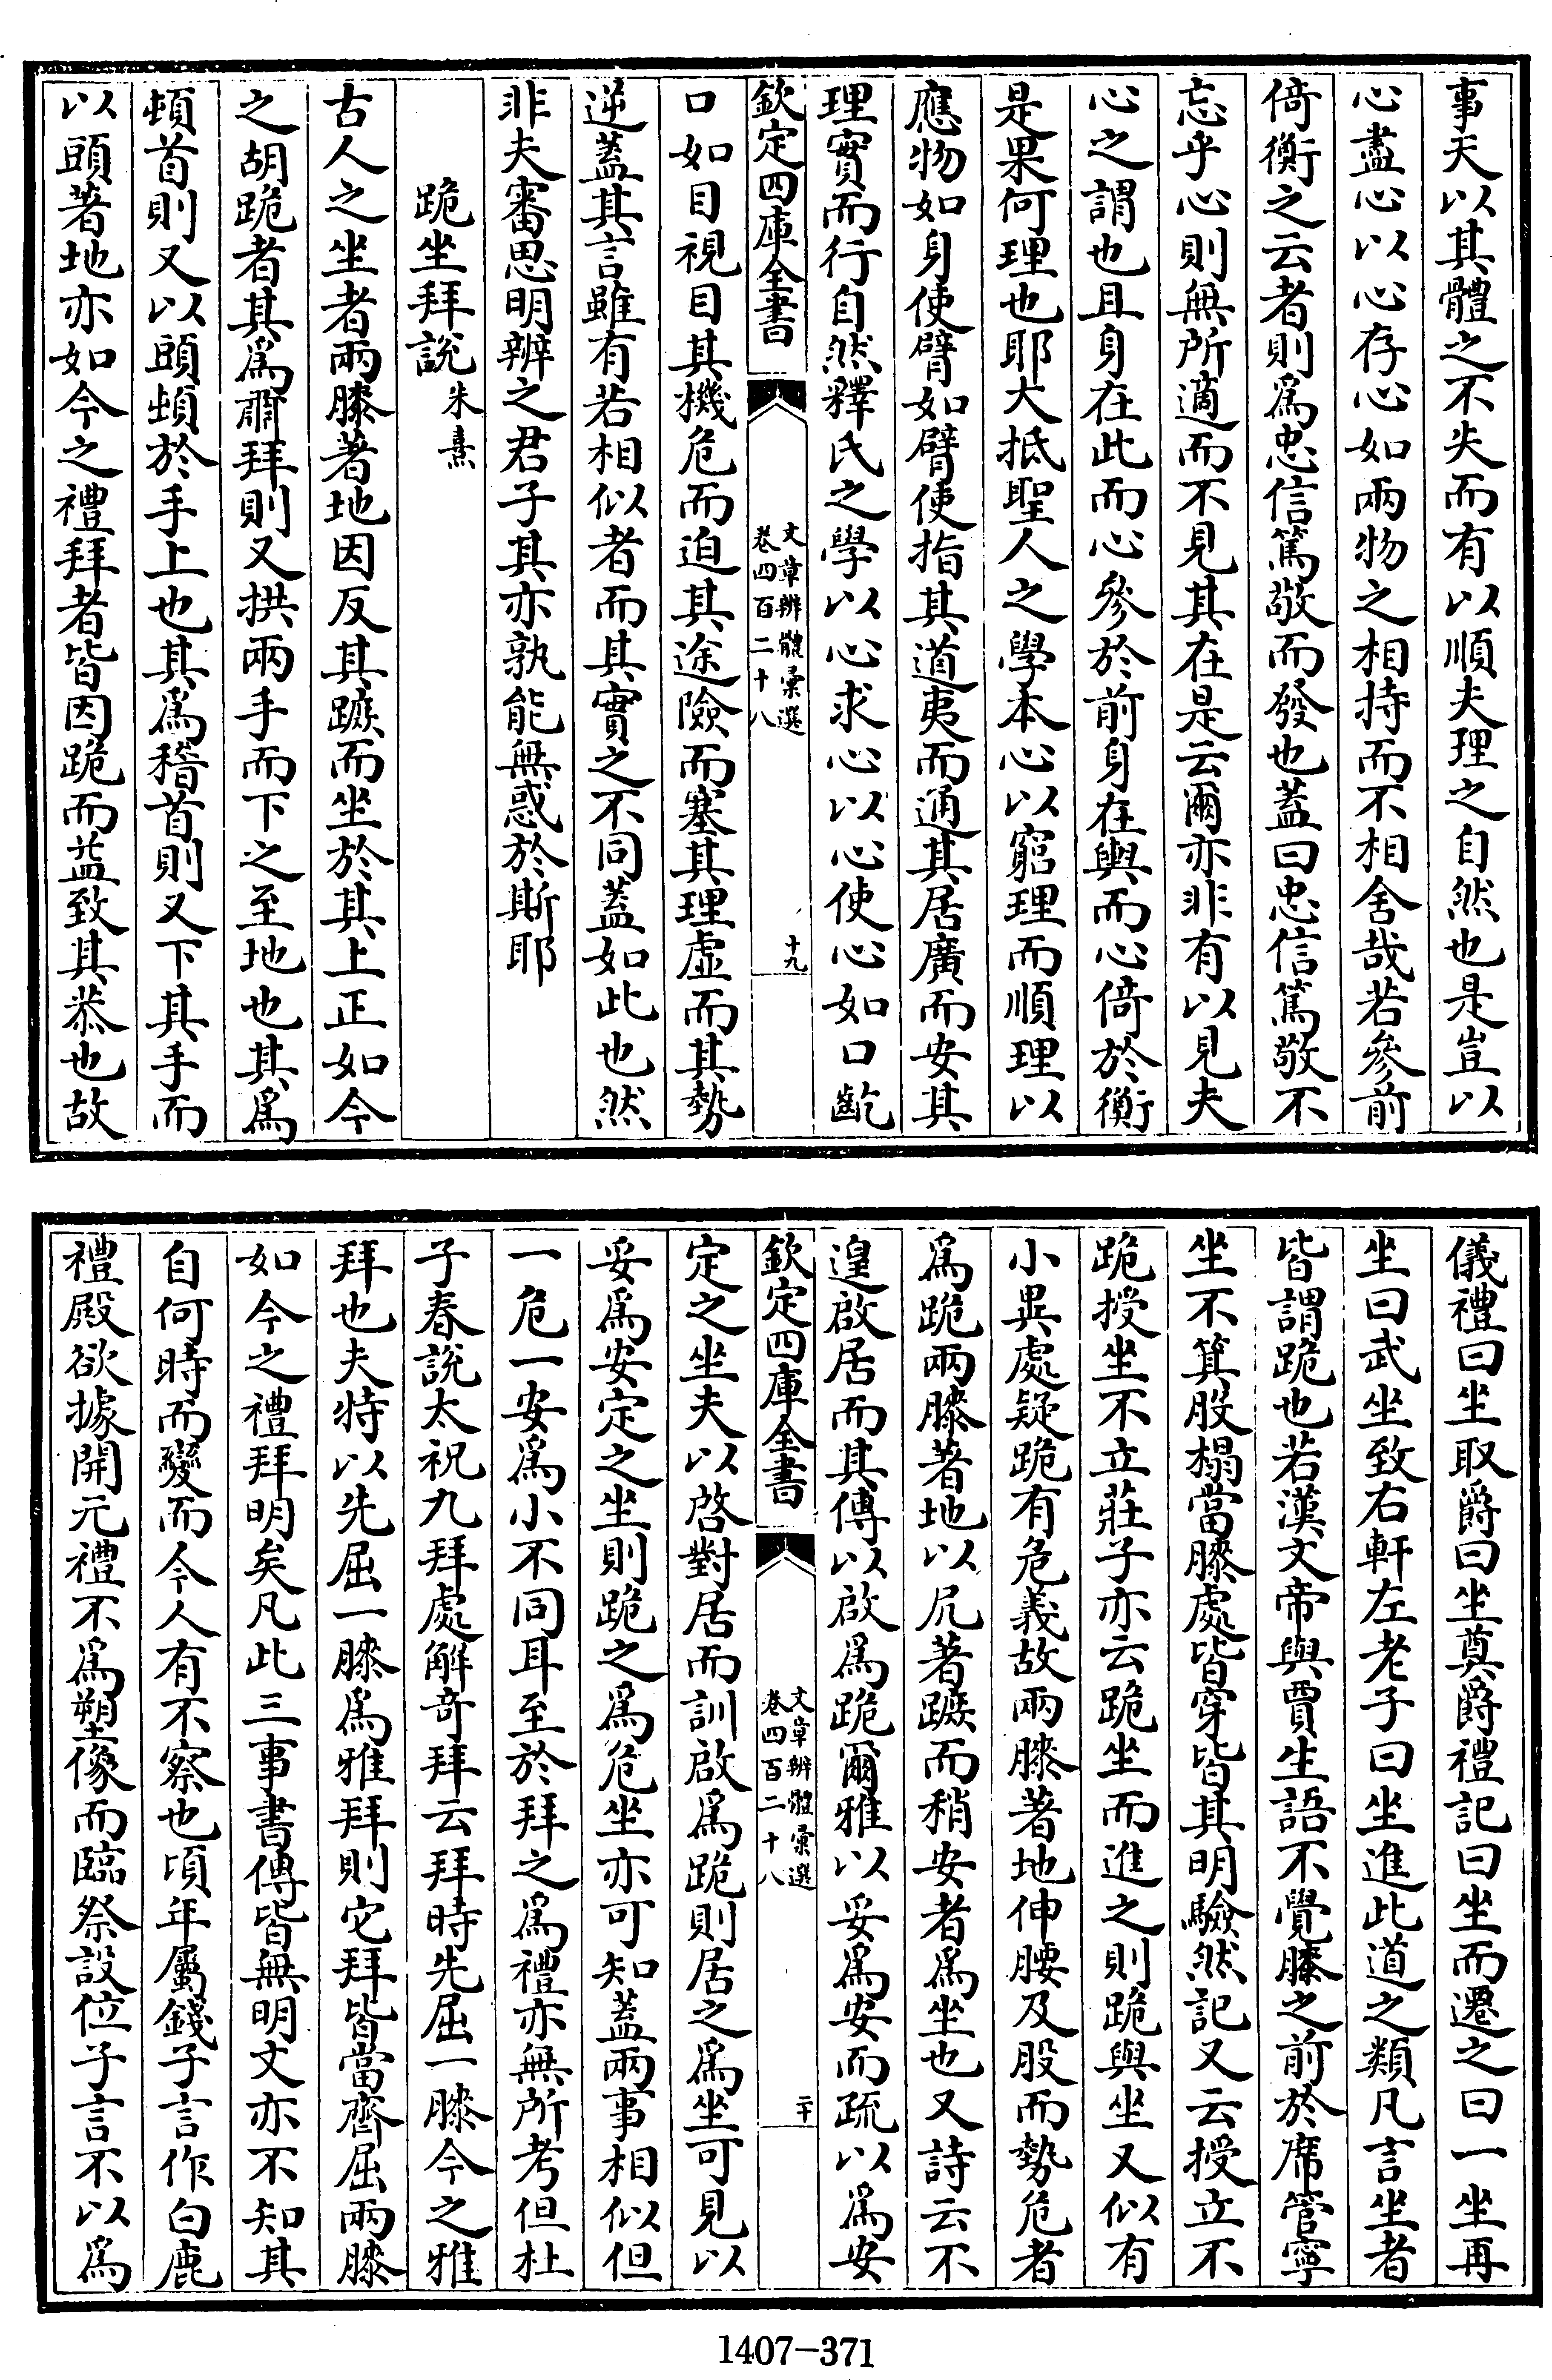 事天以其體之不失而有以順夫理之自然也是豈以
心盡心以心存心如兩物之相持而不相舍哉若參前
倚衡之云者則爲忠信篤敬而發也蓋曰忠信篤敬不
忘乎心則無所適而不見其在是云爾亦非有以見夫
心之謂也且身在此而心參於前身在輿而心倚於衡
是果何理也耶大抵聖人之學本心以窮理而順理以
應物如身使臂如臂使指其道夷而通其居廣而安其
理實而行自然釋氏之學以心求心以心使心如口齕
欽定四庫全書
文章辨體彙選
卷四百二十八
十九
口如目視目其機危而迫其途險而塞其理虛而其勢
逆蓋其言雖有若相似者而其實之不同蓋如此也然
非夫審思明辨之君子其亦孰能無惑於斯耶
跪坐拜說 朱熹
古人之坐者兩膝著地因反其蹠而坐於其上正如今
之胡跪者其爲肅拜則又拱兩手而下之至地也其爲
頓首則又以頭頓於手上也其爲稽首則又下其手而
以頭著地亦如今之禮拜者皆因跪而益致其恭也故
儀禮曰坐取爵曰坐奠爵禮記曰坐而遷之曰一坐再
坐曰武坐致右軒左老子曰坐進此道之類凡言坐者
皆謂跪也若漢文帝與賈生語不覺膝之前於席管寧
坐不箕股榻當膝處皆穿皆其明驗然記又云授立不
跪授坐不立莊子亦云跪坐而進之則跪與坐又似有
小異處疑跪有危義故兩膝著地伸腰及股而勢危者
爲跪兩膝著地以尻著蹠而稍安者爲坐也又詩云不
遑啟居而其傳以啟爲跪爾雅以妥爲安而疏以爲安
欽定四庫全書
文章辨體彙選
卷四百二十八
二十
定之坐夫以啓對居而訓啟爲跪則居之爲坐可見以
妥爲安定之坐則跪之爲危坐亦可知蓋兩事相似但
一危一安爲小不同耳至於拜之爲禮亦無所考但杜
子春說太祝九拜處解奇拜云拜時先屈一膝今之雅
拜也夫特以先屈一膝爲雅拜則它拜皆當齊屈兩膝
如今之禮拜明矣凡此三事書傳皆無明文亦不知其
自何時而變而今人有不察也頃年屬錢子言作白鹿
禮殿欲據開元禮不爲塑像而臨祭設位子言不以爲
1407-371